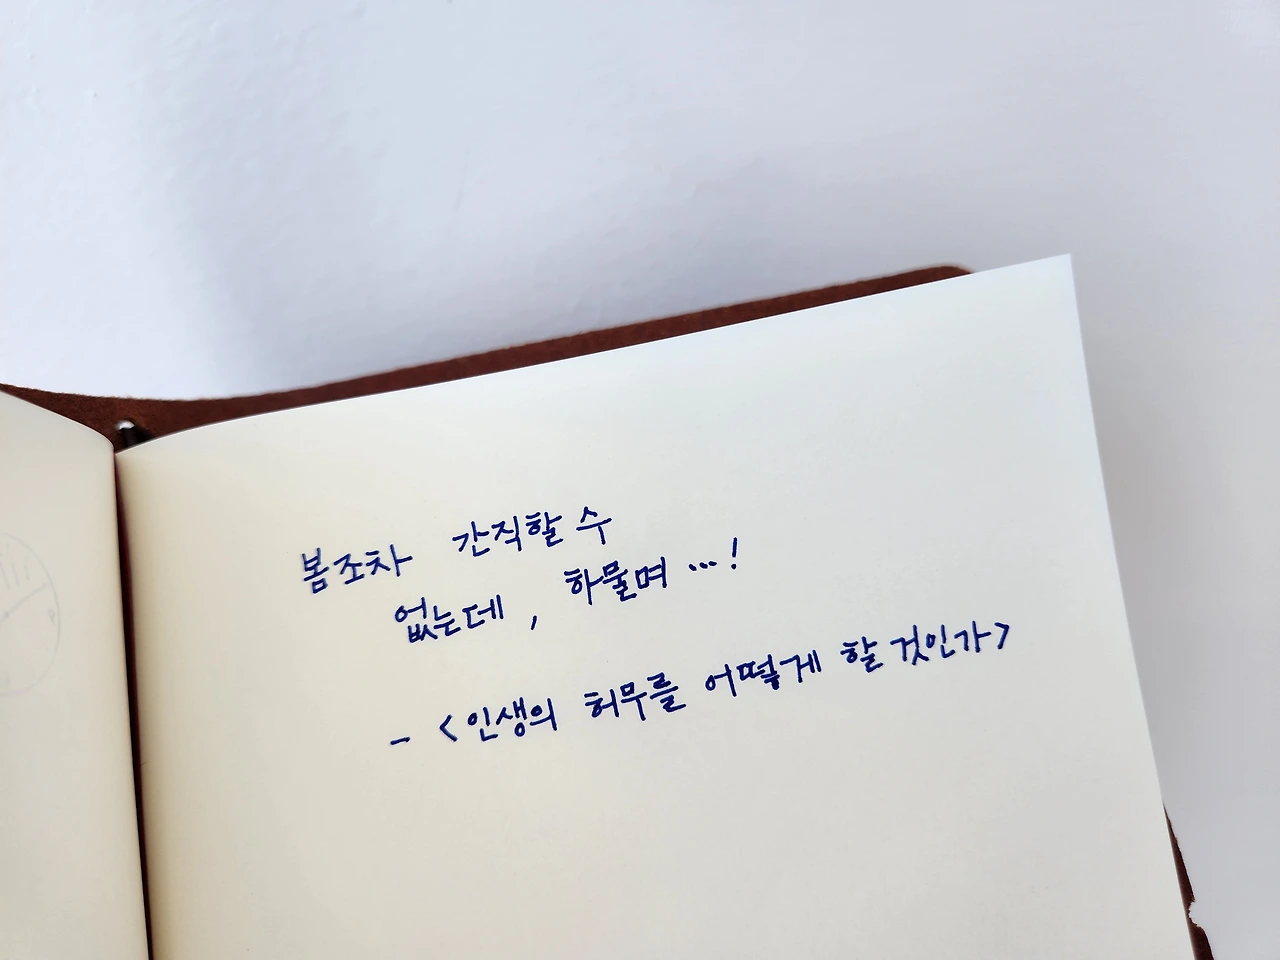 봄조차 간직할 수
없는데, 하물며 ...!
- <인생의 허무를 어떻게 할 것인가>